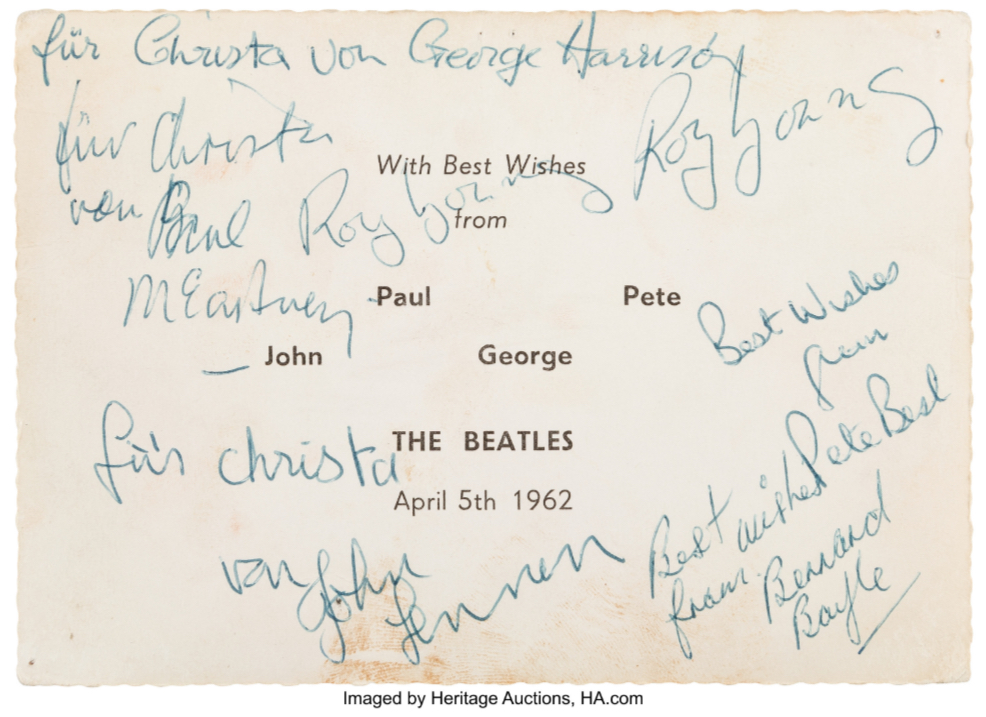 für Christa von George Harrison
für Christa
von Paul
McCartney
Roy Young
Roy Young
With Best Wishes
from
Paul Pete
John George
THE BEATLES
April 5th 1962
Best Wishes
from
Pete Best
für christa
von John
Lennon
Best wishes
from
Bernard
Boyle
Imaged by Heritage Auctions, HA.com